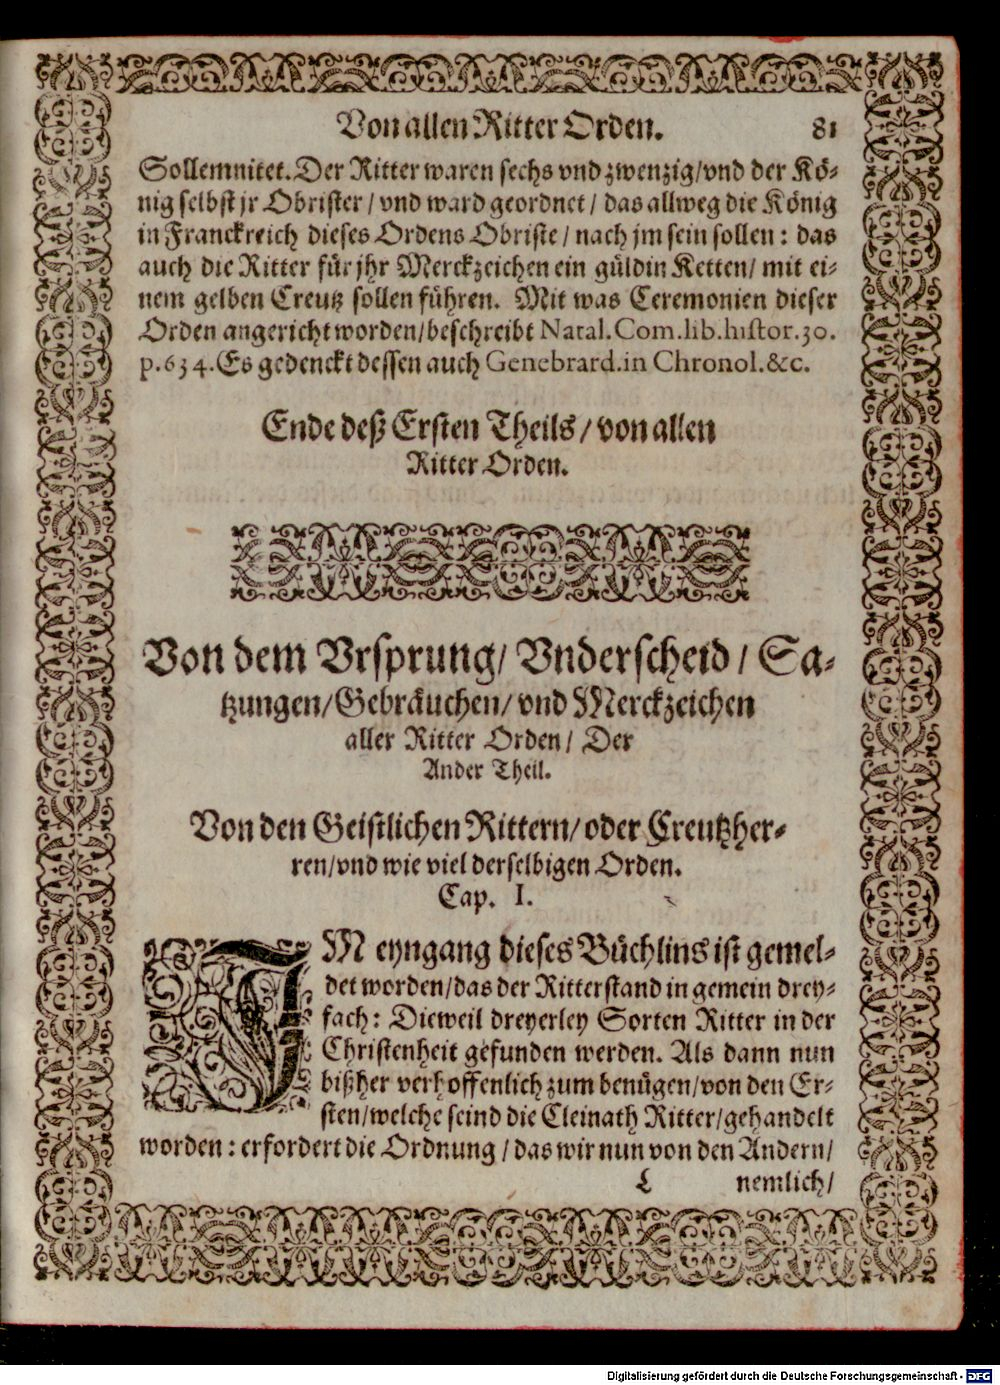 Von allen Ritter Orden. 81
Sollemnitet. Der Ritter waren sechs vnd zwenzig/vnd der Kö-
nig selbst jr Obrister / vnd ward geordnet / das allweg die König
in Franckreich dieses Ordens Obriste / nach jm sein sollen: das
auch die Ritter für jhr Merckzeichen ein güldin Ketten/ mit ei-
nem gelben Creutz sollen führen. Mit was Ceremonien dieser
Orden angericht worden/beschreibt Natal.Com.lib.histor.30.
p.634.Es gedenckt dessen auch Genebrard.in Chronol.&c.
Ende deß Ersten Theils / von allen
Ritter Orden.
Von dem Vrsprung/ Vnderscheid / Sa-
tzungen/Gebräuchen/ vnd Merckzeichen
aller Ritter Orden/ Der
Ander Theil.
Von den Geistlichen Rittern/ oder Creutzher-
ren/vnd wie viel derselbigen Orden.
Cap. I.
IM eyngang dieses Büchlins ist gemel-
det worden/das der Ritterstand in gemein drey-
fach: Dieweil dreyerley Sorten Ritter in der
Christenheit gefunden werden. Als dann nun
bißher verhoffenlich zum benügen/von den Er-
sten/welche seind die Cleinath Ritter/gehandelt
worden: erfordert die Ordnung / das wir nun von den Andern/
L nemlich/
Digitalisierung gefördert durch die Deutsche Forschungsgemeinschaft - DFG